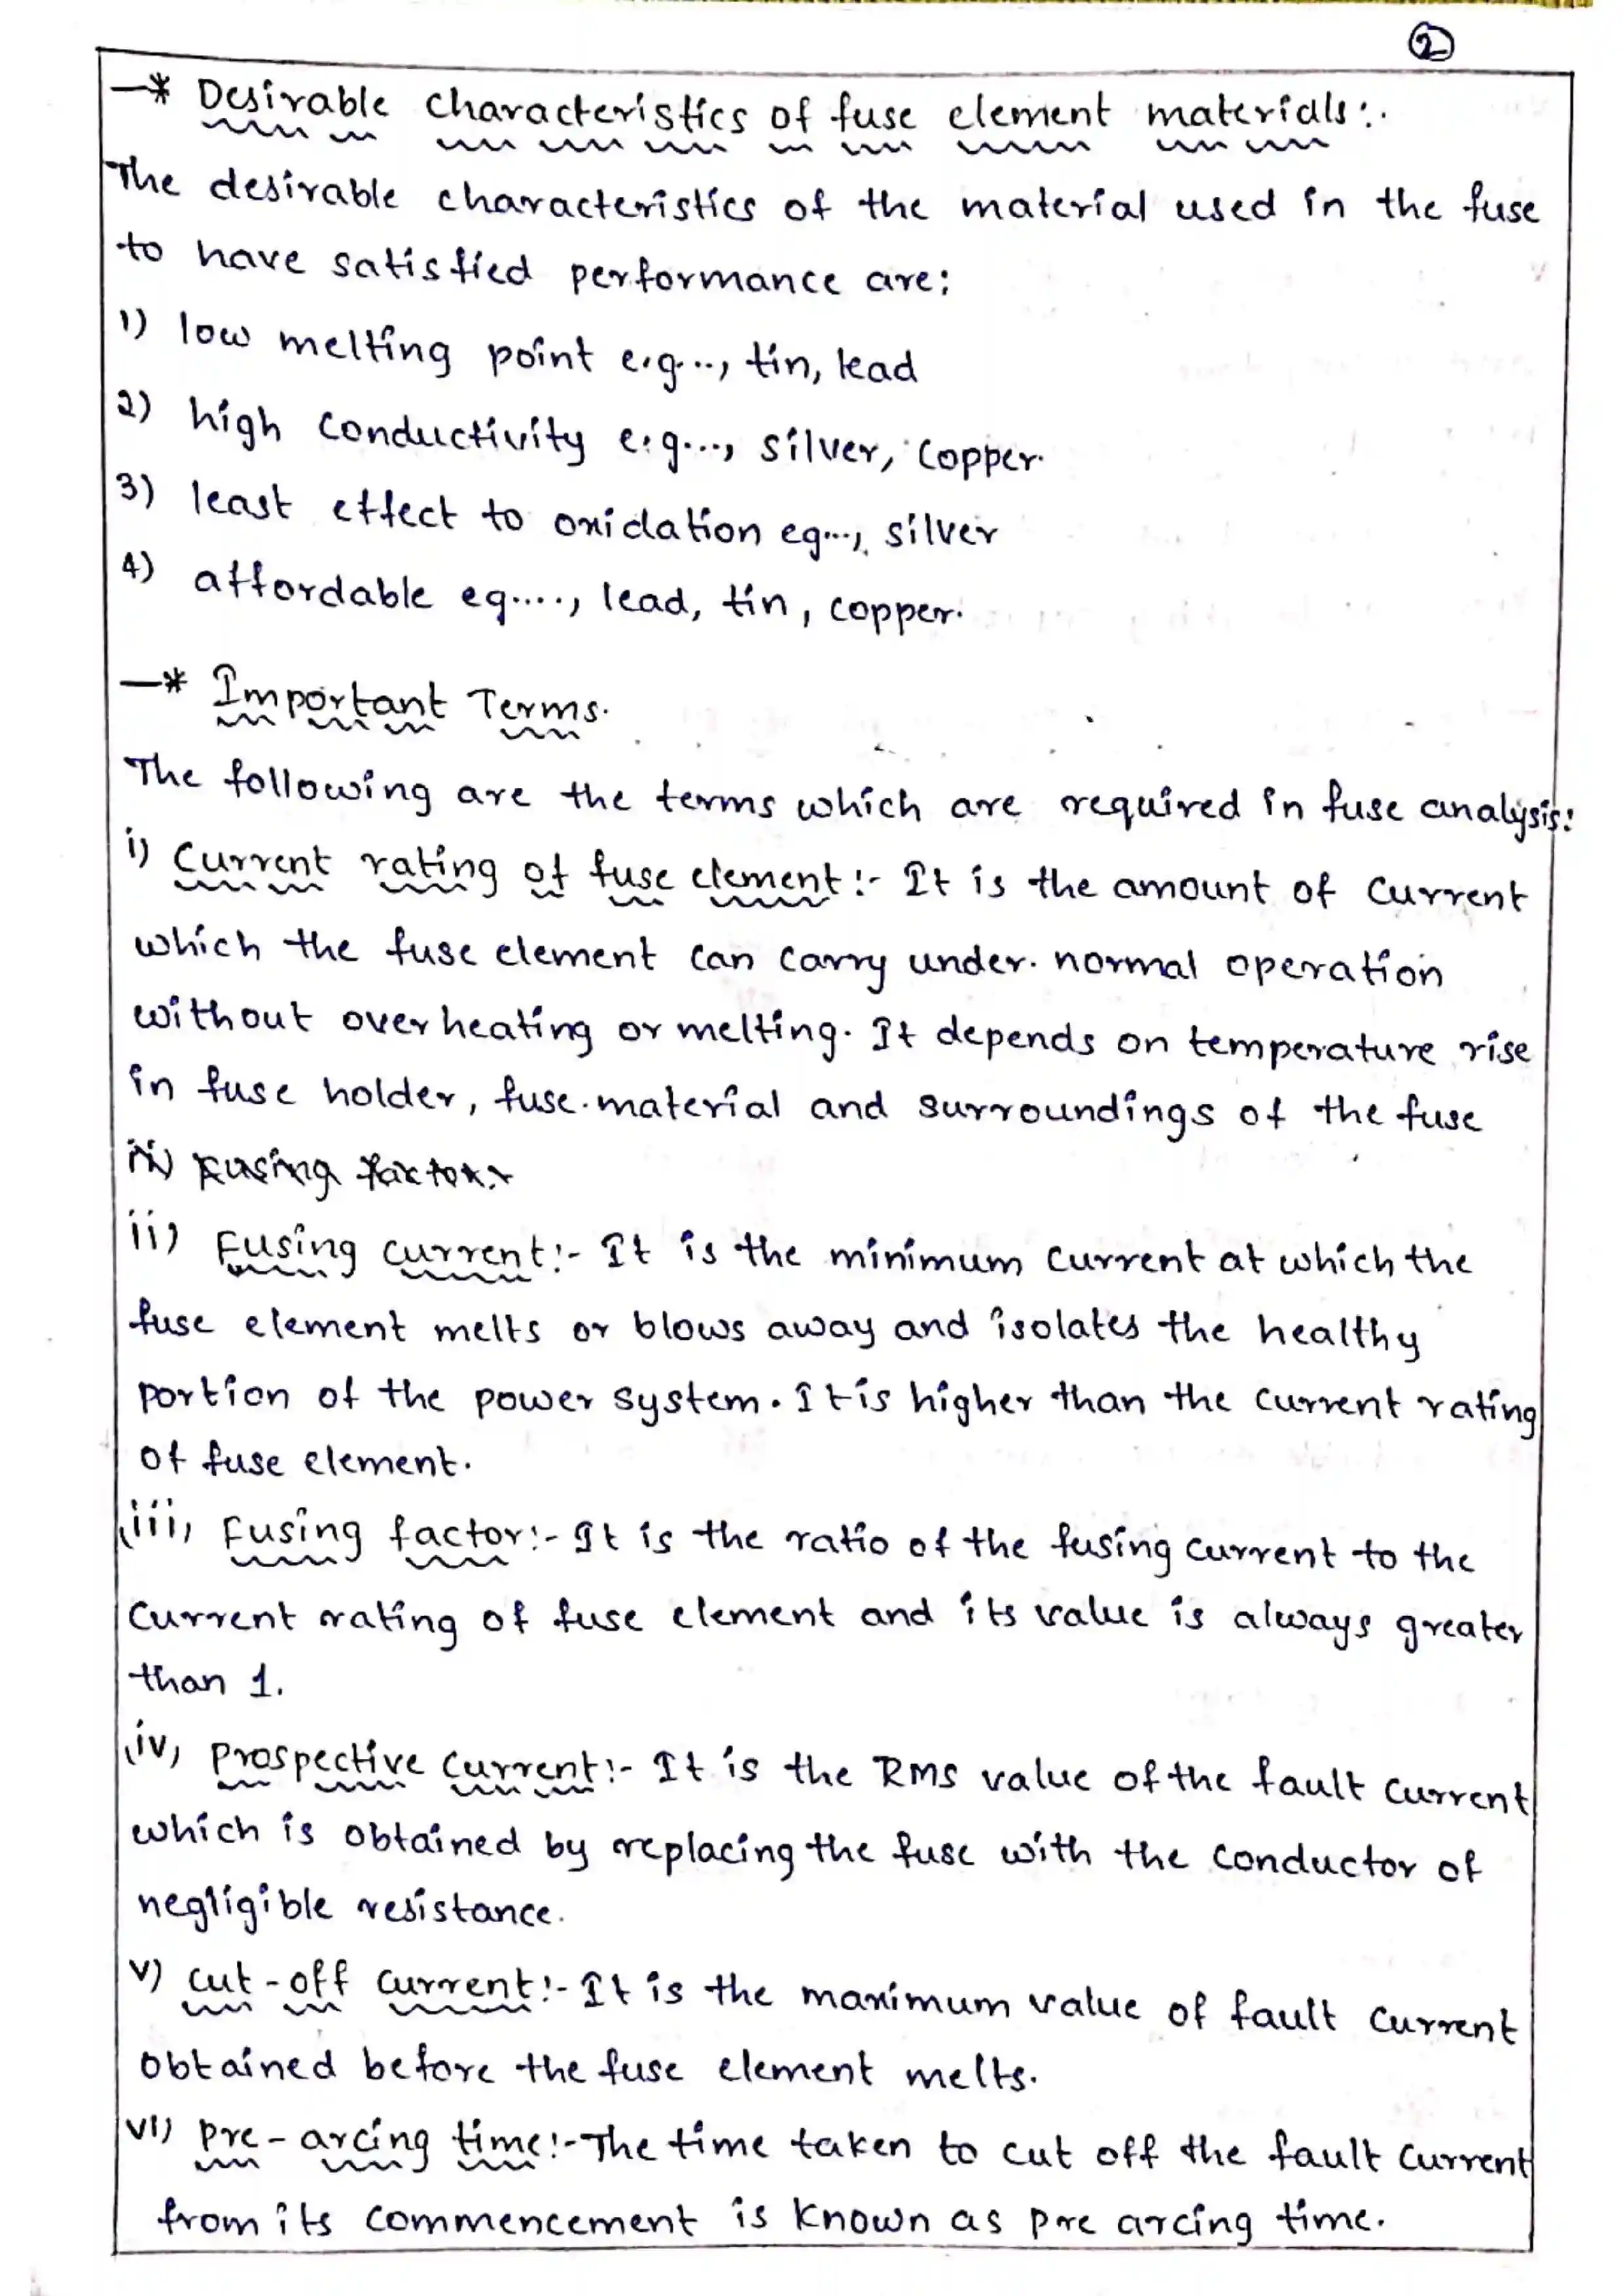 2
—* Desirable characteristics of fuse element materials:.
The desirable characteristics of the material used in the fuse
to have satisfied performance are:
1) low melting point e.g..., tin, lead
2) high conductivity e.g..., silver, copper.
3) least effect to oxidation eg..., silver
4) affordable eg...., lead, tin, copper.
—* Important Terms.
The following are the terms which are required in fuse analysis:
i) Current rating of fuse element:- It is the amount of current
which the fuse element can carry under normal operation
without overheating or melting. It depends on temperature rise
in fuse holder, fuse material and surroundings of the fuse
ii) Fusing factor:-
ii) Fusing current:- It is the minimum current at which the
fuse element melts or blows away and isolates the healthy
portion of the power system. It is higher than the current rating
of fuse element.
(iii) Fusing factor:- It is the ratio of the fusing current to the
current rating of fuse element and its value is always greater
than 1.
(iv) Prospective current:- It is the Rms value of the fault current
which is obtained by replacing the fuse with the conductor of
negligible resistance.
v) cut-off current:- It is the maximum value of fault current
obtained before the fuse element melts.
vi) pre-arcing time:- The time taken to cut off the fault current
from its commencement is known as pre arcing time.